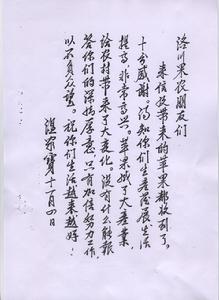 洛川果农朋友们
来信及带来的苹果都收到了。
十分感谢。得知你们生产发展生活
提高,非常高兴。苹果成了大产业,
给农村带来了大变化。没有什么能报
答你们的深情厚意,只有加倍努力工作
以不负众望。祝你们生活越来越好!
温家宝 十一月四日